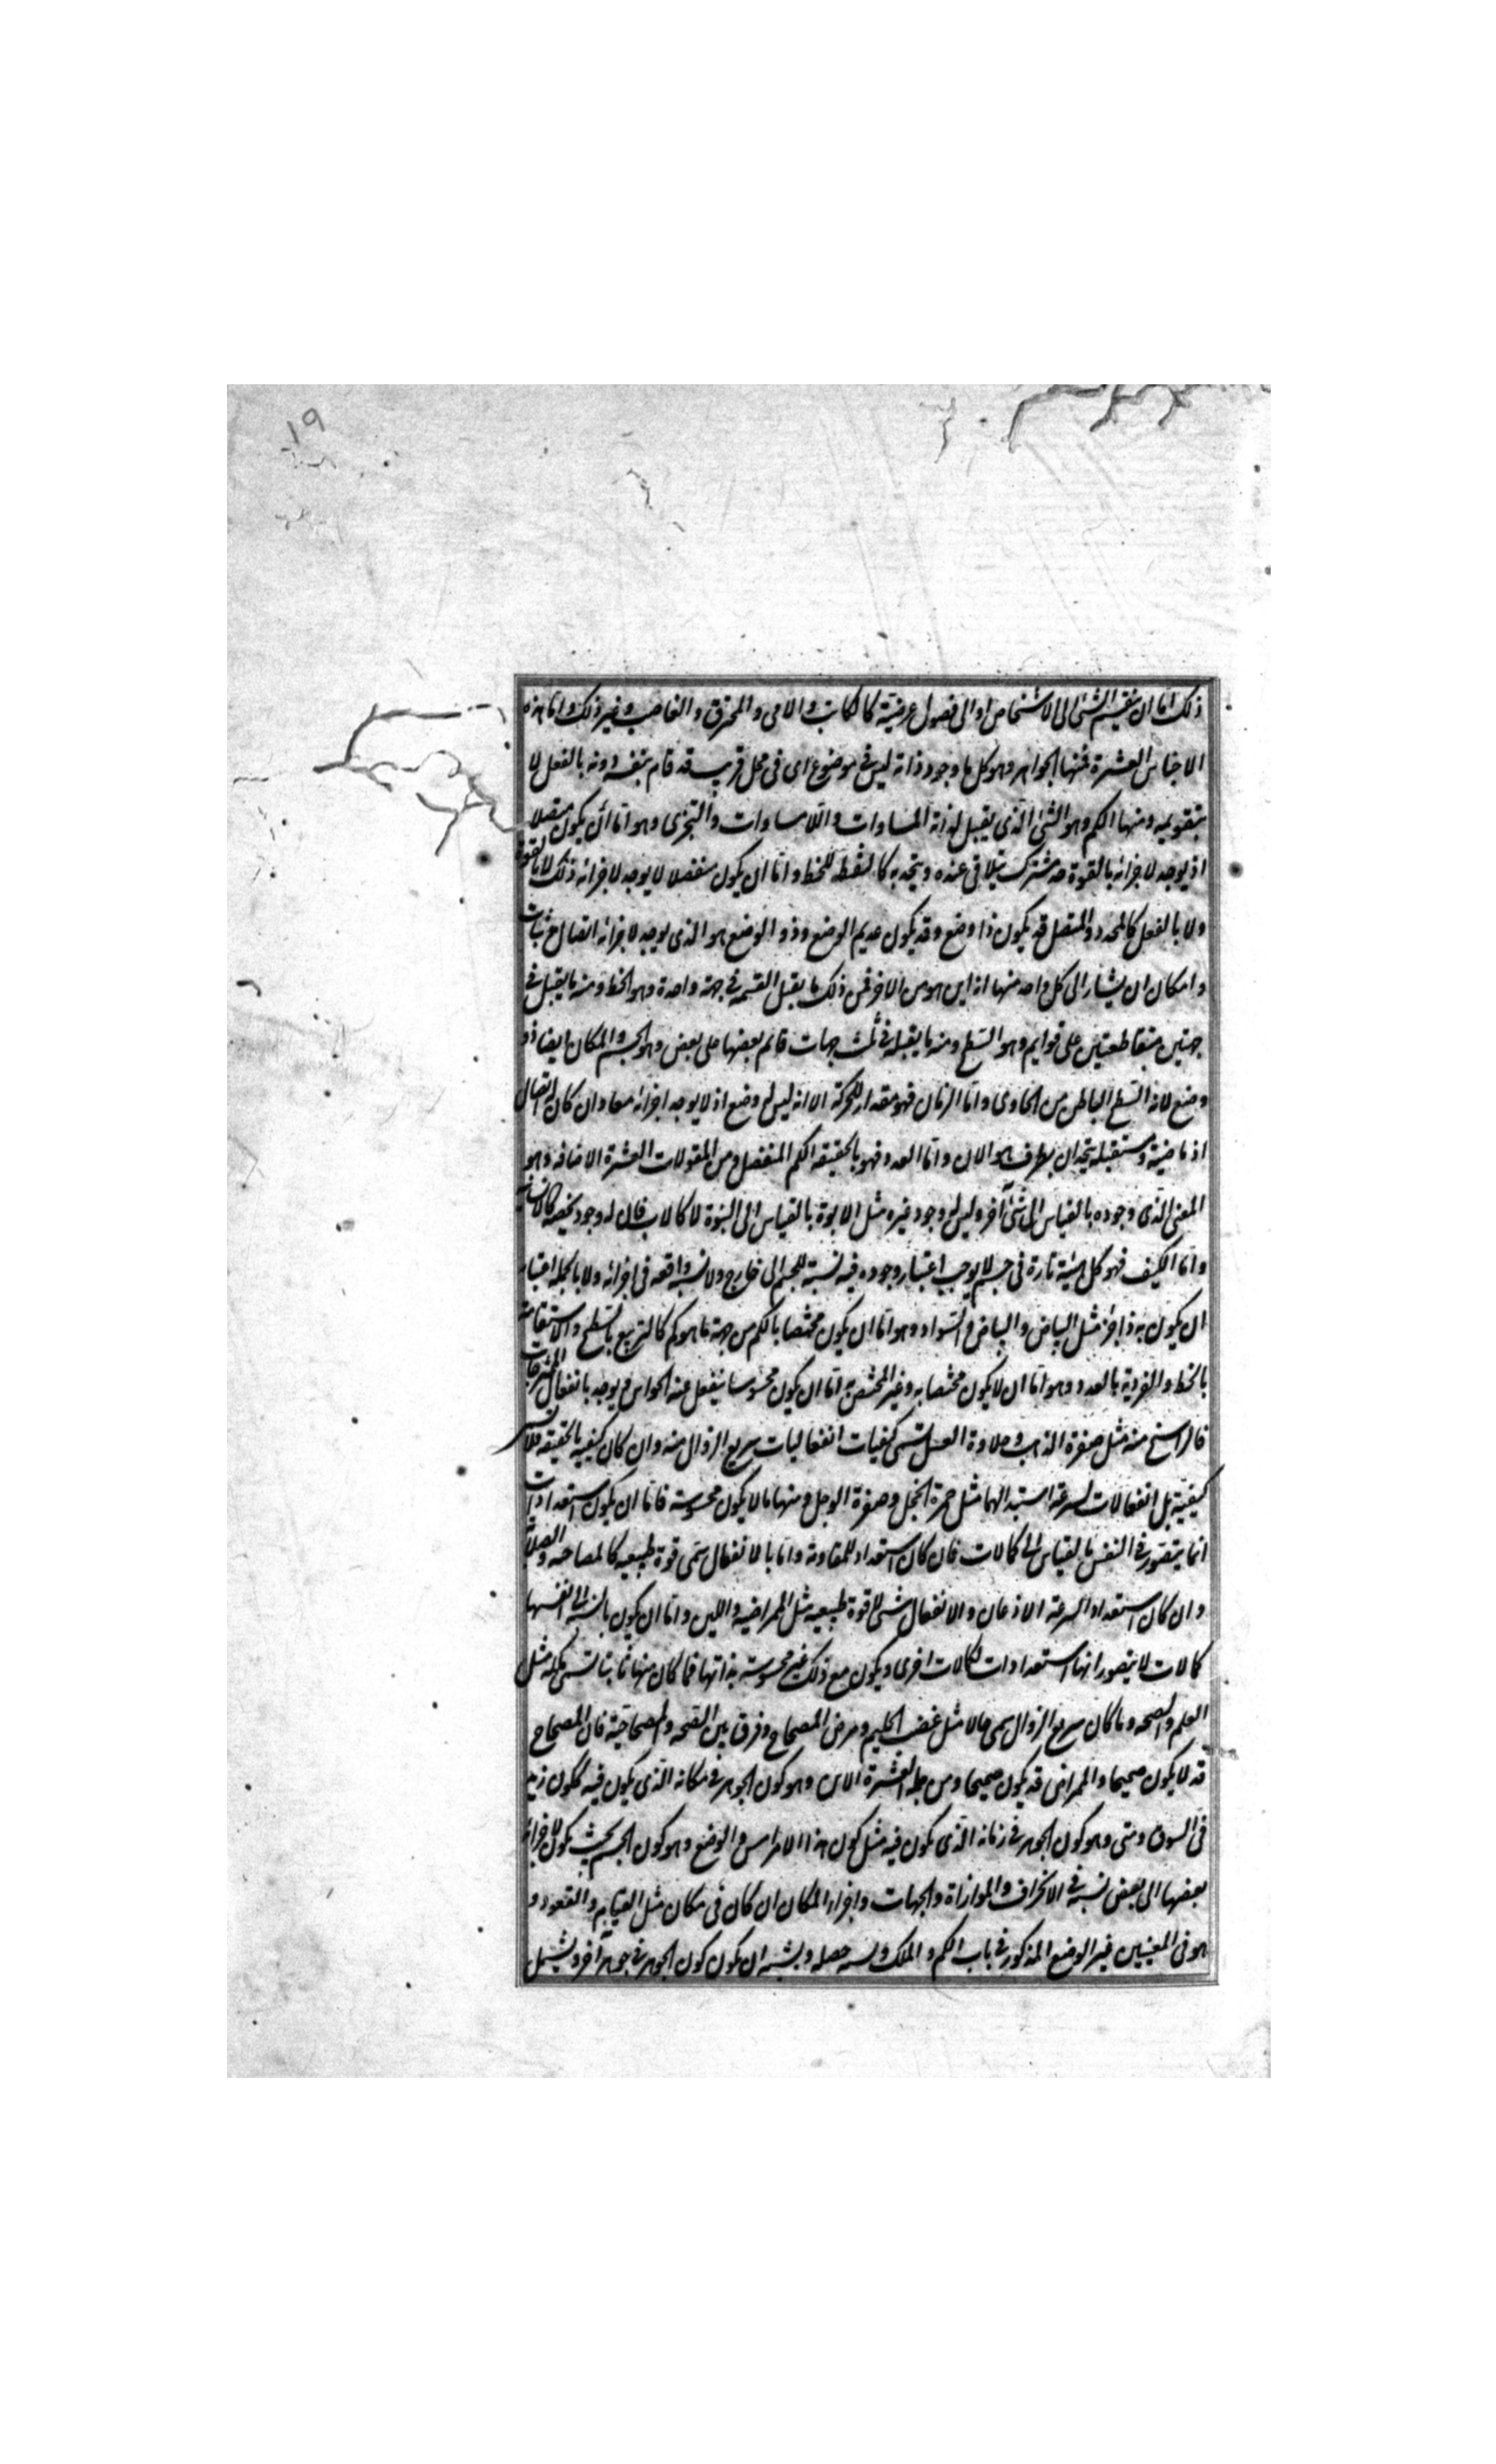 ١٩
ذلك اما ان ينقسم الشئ الى الاشخاص او الى فصول عرضية كالكاتب والامى والمحترق والغاصب وغير ذلك واما هذه
الاجناس العشرة فمنها الجواهر وهو كل ما وجود ذاته ليس فى موضوع اى فى محل قريب قد قام بنفسه دونه بالفعل لا
بتقويمه ومنها الكم وهو الشئ الذى يقبل لذاته المساوات واللامساوات والتجزى وهو اما أن يكون متصلا
اذ يوجد لاجزائه بالقوة حد مشترك يتلاقى عنده ويتحد به كالنقطه للخط واما ان يكون منفصلا لا يوجد لاجزائه ذلك لا بالقوة
ولا بالفعل كالعدد والمتصل قد يكون ذا وضع وقد يكون عديم الوضع وذو الوضع هو الذى يوجد لاجزائه اتصال وثبات
وامكان ان يشار الى كل واحد منها انه اين هو من الاخر فمن ذلك ما يقبل القسمه فى جهة واحدة وهو الخط ومنه ما يقبل فى
جهتين متقاطعتين على قوايم وهو السطح ومنه ما يقبله فى ثلث جهات قائم بعضها على بعض وهو الجسم والمكان ايضا ذو
وضع لانه السطح الباطن من الحاوى واما الزمان فهو مقدار للحركة الا انه ليس له وضع اذ لا يوجد اجزائه معا وان كان له اتصال
اذ ماضيه ومستقبله يتحدان بطرف هو الان واما العدد فهو بالحقيقه الكم المنفصل ومن المقولات العشرة الاضافه وهو
المعنى الذى وجوده بالقياس الى شئ آخر وليس له وجود غيره مثل الابوة بالقياس الى البنوة لا كالاب فان له وجود يخصه كالانسانية
واما الكيف فهو كل هيئة قارة فى جسم لا يوجب اعتبار وجوده فيه نسبة للجسم الى خارج ولا نسبة واقعه فى اجزائه ولا بالجمله اعتبار
ان يكون به ذا جزء مثل البياض والسواد وهو اما ان يكون مختصا بالكم من جهة ما هو كم كالتربيع بالسطح والاستقامة
بالخط والفردية بالعدد وهو اما ان لا يكون مختصا به وغير المختص به اما ان يكون محسوسا ينفعل عنه الحواس ويوجد بانفعال الممتزجات
فالراسخ منه مثل صفرة الذهب وحلاوة العسل تسمى كيفيات انفعاليات سريع الزوال منه وان كان كيفيه بالحقيقه فلا تسمى
كيفية بل انفعالات لسرعة استبدالها مثل حمرة الخجل وصفرة الوجل ومنها ما لا يكون محسوسة فاما ان يكون استعدادات
انما يتصور فى النفس بالقياس الى كمالات فان كان استعداد للمقاومة واما بالانفعال سمى قوة طبيعيه كالمصاحيه والصلابة
وان كان استعدادا لسرعة الاذعان والانفعال سمى لا قوة طبيعيه مثل الممراضيه واللين واما ان يكون بالنسبة الى انفسها
كمالات لا يتصور انها استعدادات لكمالات اخرى ويكون مع ذلك غير محسوسة بذاتها فما كان منها ثابتا تسمى ملكه مثل
العلم والصحه وما كان سريع الزوال سمى حالا مثل غضب الحليم ومرض المصحاح وفرق بين الصحه والمصحاحية فان المصحاح
قد لا يكون صحيحا والممراض قد يكون صحيحا ومن جمله العشرة الاين وهو كون الجوهر فى مكانه الذى يكون فيه ككون زيد
فى السوق ومتى وهو كون الجوهر فى زمانه الذى يكون فيه مثل كون هذا الامر امس والوضع وهو كون الجسم بحيث يكون لاجزائه
بعضها الى بعض نسبة فى الانحراف والموازاة والجهات واجزاء المكان ان كان فى مكان مثل القيام والقعود و
هو فى المعنيين غير الوضع المذكور فى باب الكم والملك ولست احصله ويشبه ان يكون كون الجوهر فى جوهر آخر ويشمل